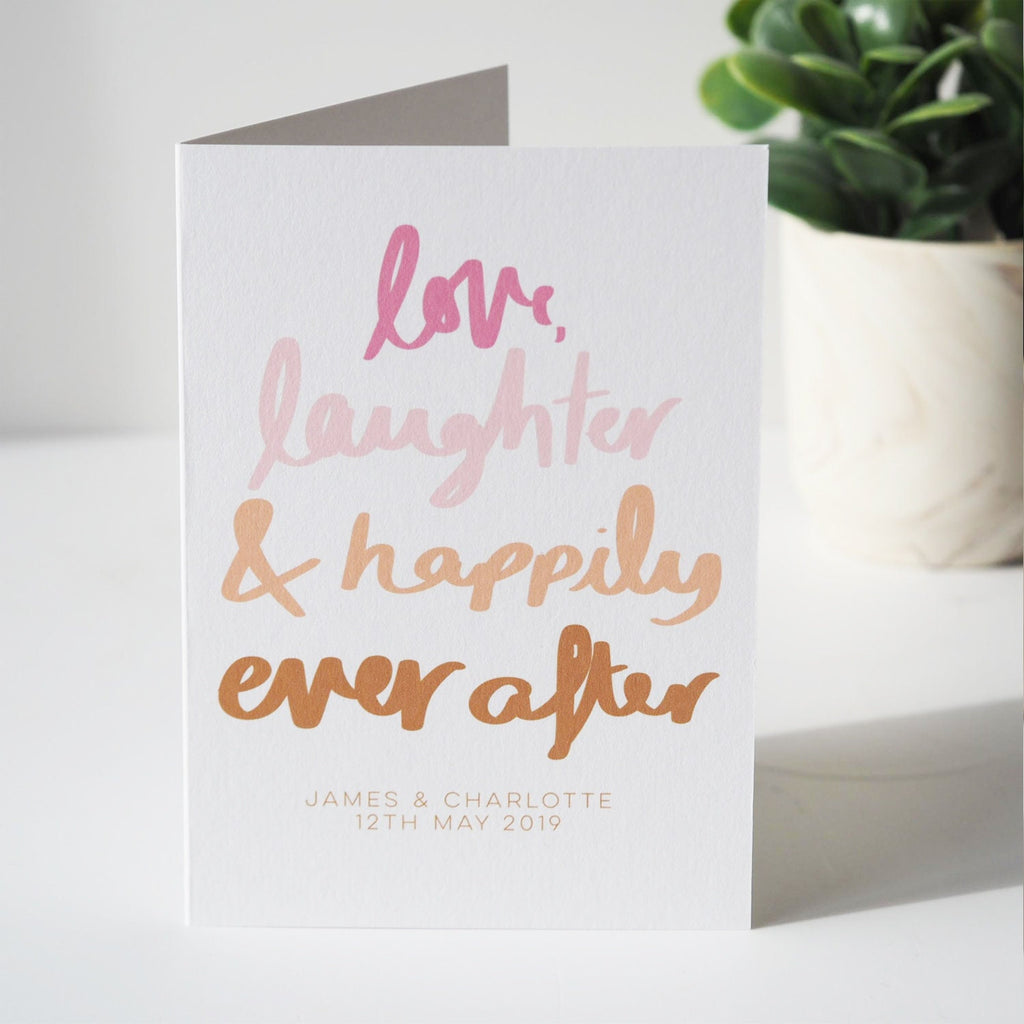 love,
laughter
& happily
ever after
JAMES & CHARLOTTE
12TH MAY 2019